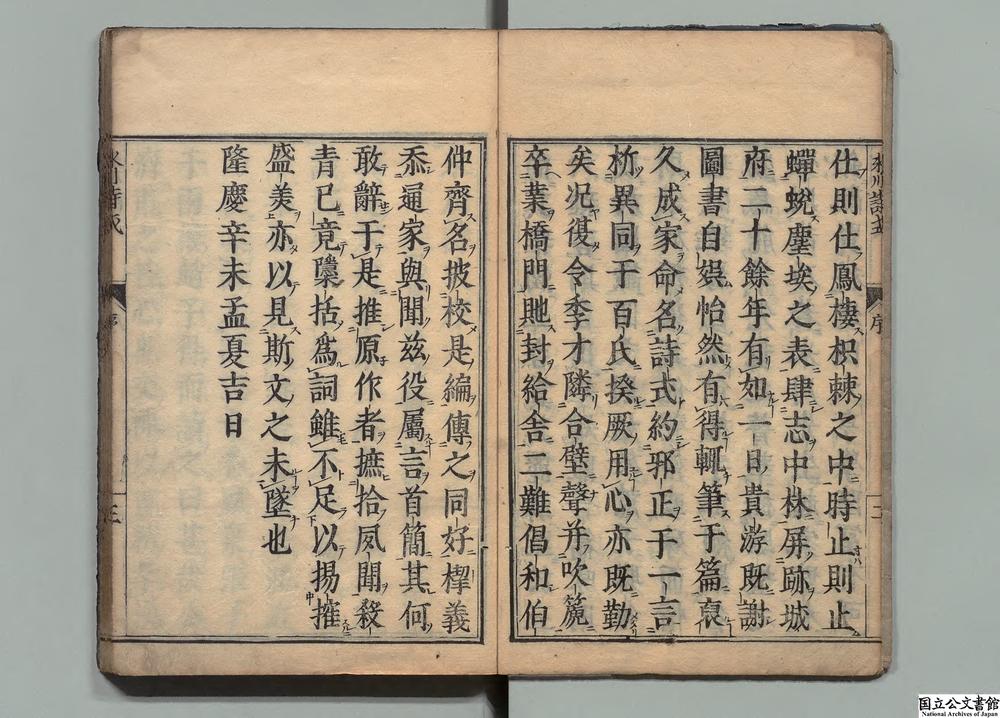 氷川詩式
序
二
仕則仕鳳棲枳棘之中時止則止
蟬蛻塵埃之表肆志中林屏跡城
府二十餘年有如一日貴游既謝
圖書自娯怡然有得輒筆于篇裒
久成家命名詩式約邪正于一言
析異同于百氏揆厥用心亦既勤
矣况復令季才隣合壁聲并吹篪
卒業橋門貤封給舍二難倡和伯
仲齊名披校是編傳之同好樫義
忝通家與聞兹役屬言首簡其何
敢辭于是推原作者摭拾夙聞殺
青已竟櫽括爲詞雖不足以揚搉
盛美亦以見斯文之未墜也
隆慶辛未孟夏吉日
氷川詩式
序
三
国立公文書館
National Archives of Japan